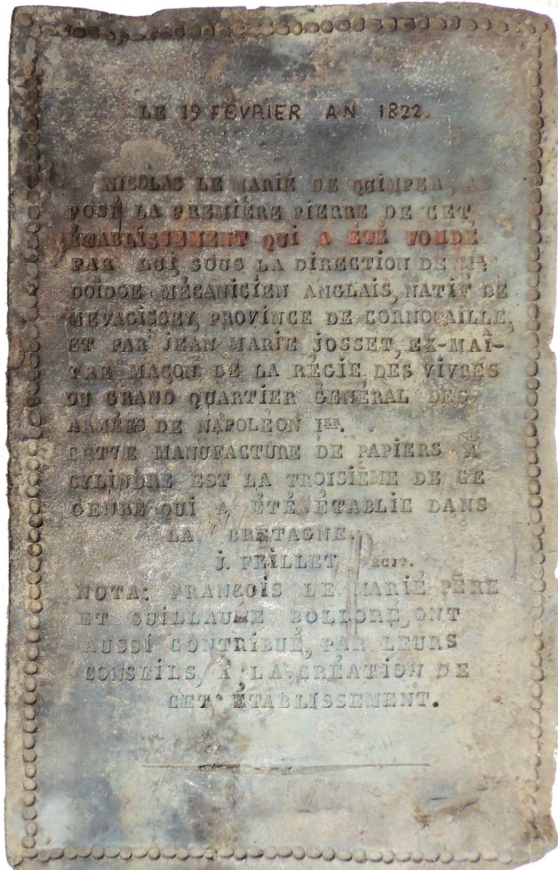 LE 19 FÉVRIER AN 1822.
NICOLAS LE MARIÉ DE QUIMPER, A
POSÉ LA PREMIÈRE PIERRE DE CET
ÉTABLISSEMENT QUI A ÉTÉ FONDÉ
PAR LUI, SOUS LA DIRECTION DE
DOIDGE MÉCANICIEN ANGLAIS, NATIF DE
MEVAGISSEY, PROVINCE DE CORNOUAILLE,
ET PAR JEAN MARIE JOSSET, EX-MAÎ-
TRE MAÇON DE LA RÉGIE DES VIVRES
DU GRAND QUARTIER GÉNÉRAL DES
ARMÉES DE NAPOLÉON Ier.
CETTE MANUFACTURE DE PAPIERS A
CYLINDRE EST LA TROISIÈME DE CE
GENRE QUI A ÉTÉ ÉTABLIE DANS
LA BRETAGNE.
J. FEILLET FECIT.
NOTA: FRANÇOIS LE MARIÉ PÈRE
ET GUILLAUME BOLLORÉ, ONT
AUSSI CONTRIBUÉ, PAR LEURS
CONSEILS, A LA CRÉATION DE
CET ÉTABLISSEMENT.